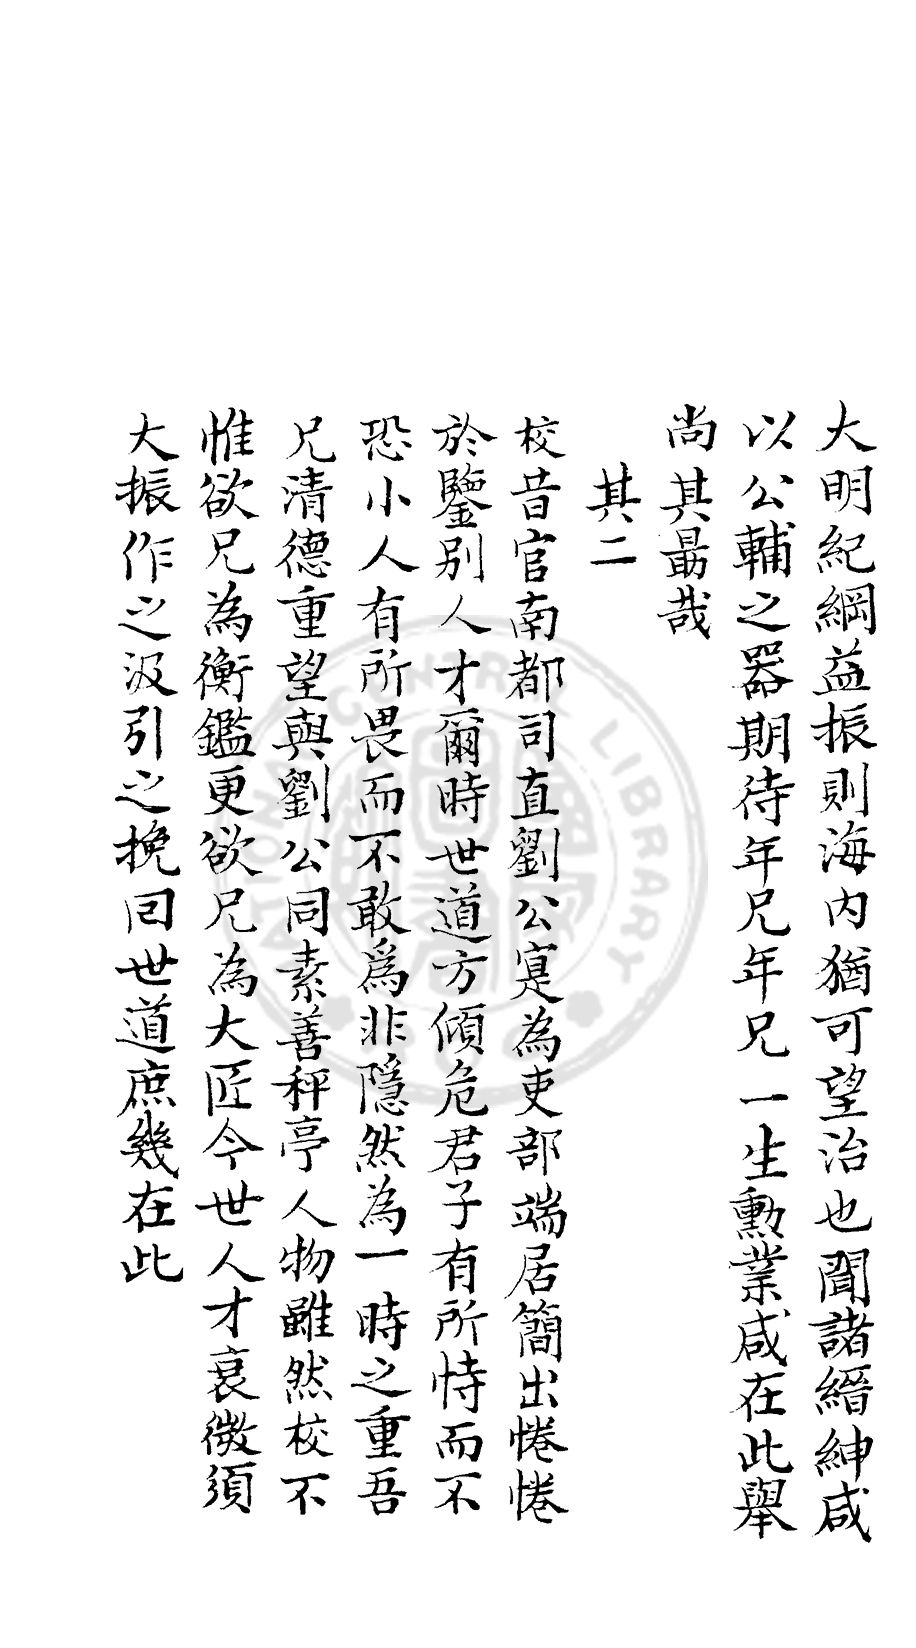 大明紀綱益振則海内猶可望治也聞諸縉紳咸
以公輔之器期待年兄年兄一生勲業咸在此舉
尚其勗哉
其二
校昔官南都司直劉公寔為吏部端居簡出惓惓
於鑒別人才爾時世道方傾危君子有所恃而不
恐小人有所畏而不敢爲非隱然為一時之重吾
兄清德重望與劉公同素善秤亭人物雖然校不
惟欲兄為衡鑑更欲兄為大匠今世人才衰微須
大振作之汲引之挽囘世道庶幾在此
CENTRAL LIBRARY